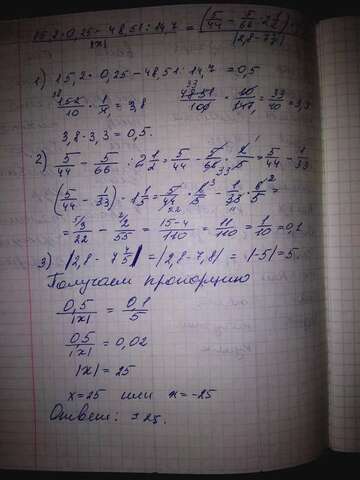 15,2·0,25 − 48,51 : 14,7 / |x| = (5/44 − 5/66 · 2 1/2) · / |2,8 −
1) 15,2 · 0,25 − 48,51 : 14,7 = 0,5
152/10 · 1/4 = 3,8 4851/100 · 10/147 = 33/10 = 3,3
3,8 · 3,3 = 0,5.
2) 5/44 − 5/66 · 2 1/2 = 5/44 − 5/66 · 2/5 = 5/44 − 1/33
(5/44 − 1/33) · 1 1/5 = 5/44 · 6/5 − 1/33 · 6/5 =
= 3/22 − 2/55 = 15−4/110 = 11/110 = 1/10 = 0,1
3) |2,8 − 7 4/5| = |2,8 − 7,8| = |−5| = 5.
Получаем пропорцию
0,5/|x| = 0,1/5
0,5/|x| = 0,02
|x| = 25
x = 25 или x = −25
Ответ: ±25.